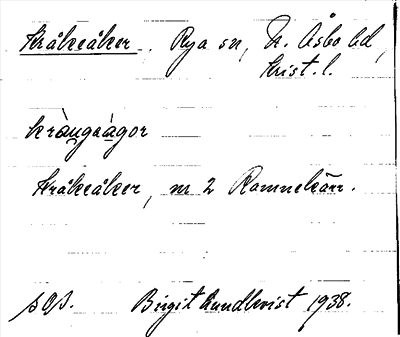 Kråkeåker, Rya sn, N. Åsbo hd,
Krist. l.
kràŋgaàgor
Kråkeåker, m 2 Ramnekärr.
Birgit Lundkvist 1938.